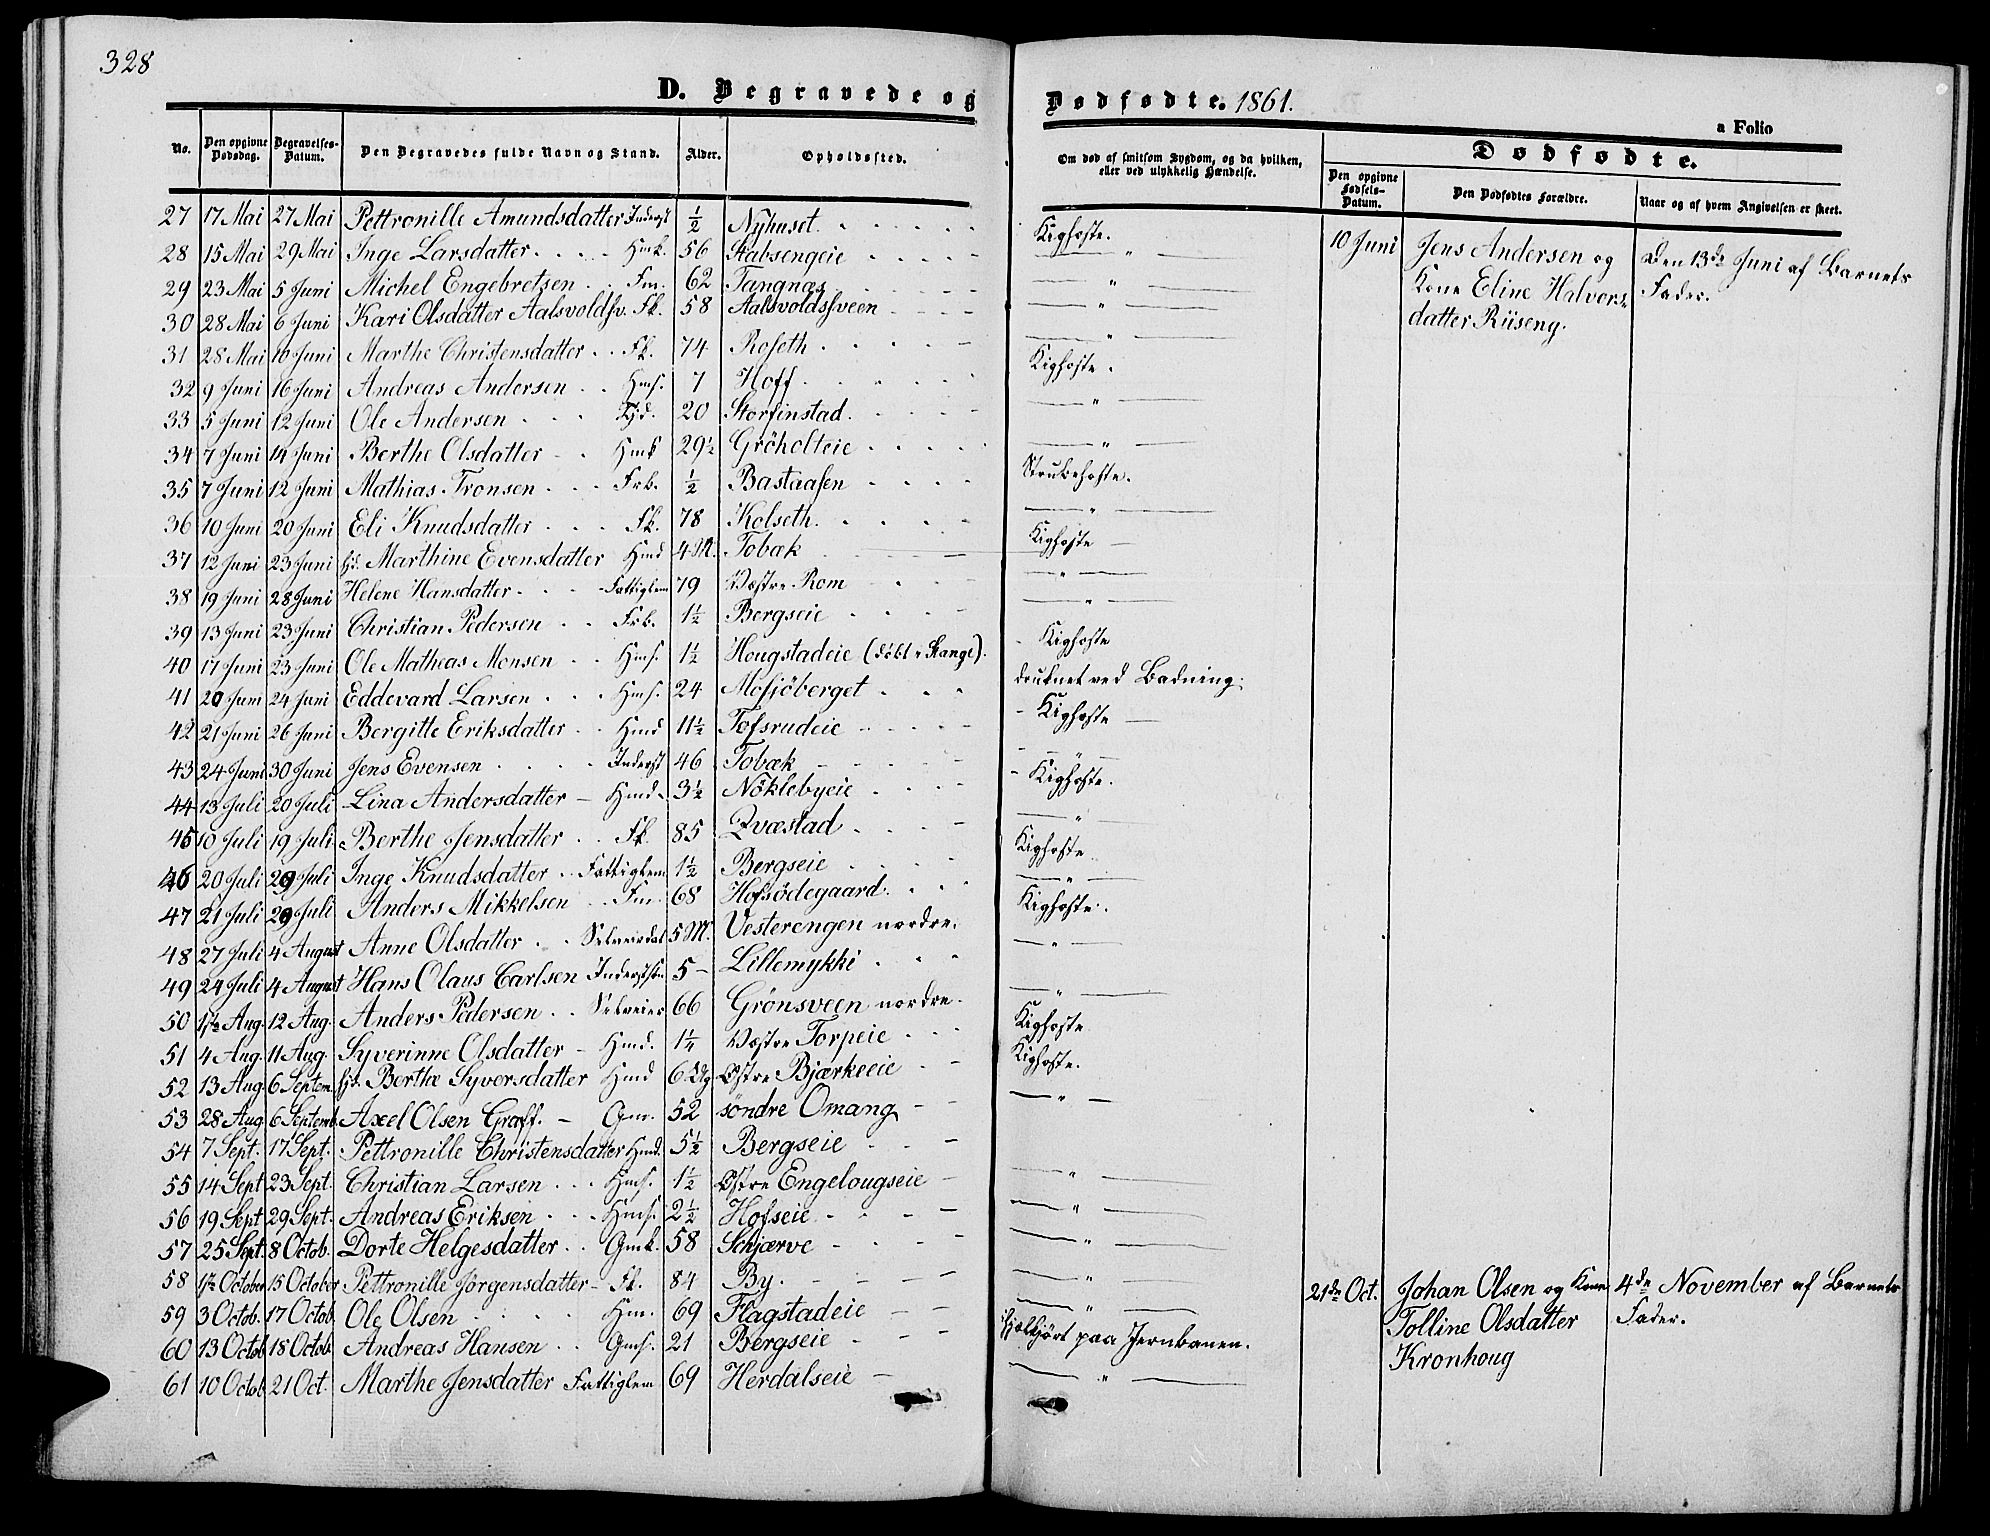 328
D. Begravede og Dødfødte. 1861.
a Folio
No. Den opgivne Dødsdag. Begravelses-Datum. Den Begravedes fulde Navn og Stand. Alder. Opholdssted. Om død af smitsom Sygdom, og da hvilken, eller ved ulykkelig Hændelse.
Dødfødte.
Den opgivne Fødsels-Datum. Den Dødfødtes Forældre. Naar og af hvem Angivelsen er skeet.
27 17 Mai 27 Mai Pettronille Amundsdatter Inderst ½ Nyhuset. Kighoste.
28 15 Mai 29 Mai Inge Larsdatter Hmk. 56 Stabsengeie — " —
29 23 Mai 5 Juni Michel Engebretsen Fm. 62 Tangnæs — " —
30 28 Mai 6 Juni Kari Olsdatter Aalsvoldsv. Fk. 58 Aalsvoldssveen — " —
31 28 Mai 10 Juni Marthe Christensdatter Fk. 74 Roseth — " —
32 9 Juni 16 Juni Andreas Andersen Hms. 7 Hoff. Kighoste.
33 5 Juni 12 Juni Ole Andersen Tjd. 20 Storfinstad. — " —
34 7 Juni 14 Juni Berthe Olsdatter Hmk 29½ Gröholteie — " —
35 7 Juni 12 Juni Mathias Tronsen Frb. ½ Bastaasen Strubehoste.
36 10 Juni 20 Juni Eli Knudsdatter Fk. 78 Kolseth. — " —
37 12 Juni 23 Juni hj. Marthine Evensdatter Hmd 4 M. Tobæk Kighoste —
38 19 Juni 28 Juni Helene Hansdatter Fattiglem 79 Væstre Rom — " —
39 13 Juni 23 Juni Christian Pedersen Frb. 1½ Bergseie — " —
40 17 Juni 23 Juni Ole Matheas Monsen Hms. 1½ Hougstadeie (döbt i Stange). - Kighoste
41 20 Juni 24 Juni Eddevard Larsen Hms. 24 Mosjöberget druknet ved Badning.
42 21 Juni 26 Juni Bergitte Eriksdatter Hmd 11½ Tofsrudeie - Kighoste —
43 24 Juni 30 Juni Jens Evensen Inderst 46 Tobæk — " —
44 13 Juli 20 Juli Lina Andersdatter Hmd. 3½ Nöklebyeie - Kighoste.
45 10 Juli 19 Juli Berthe Jensdatter Fk. 85 Qvæstad — " —
46 20 Juli 29 Juli Inge Knudsdatter Fattiglem 1½ Bergseie Kighoste
47 21 Juli 29 Juli Anders Mikkelsen Fm. 68 Hofsödegaard — " —
48 27 Juli 4 August Anne Olsdatter Selveierdat 5 M. Vesterengen nordre. Kighoste.
49 24 Juli 4 August Hans Olaus Carlsen Inderstsön 5 - Lillemykki — " —
50 1ste Aug. 12 Aug. Anders Pedersen Selveier 66 Grönsveen nordre. — " —
51 4 Aug. 11 Aug. Syverinne Olsdatter Hmd. 1¼ Væstre Torpeie Kighoste
52 13 Aug 6 Septem hj. Berthe Syversdatter Hmd 6 Dg Østre Bjærkeeie Kighoste.
53 28 Aug 6 Septemb. Axel Olsen Graff. Gm. 52 söndre Omang — " —
54 7 Sept. 17 Sept. Pettronille Christensdatter Hmd. 5½ Bergseie
55 14 Sept 23 Sept. Christian Larsen Hms. 1½ Østre Engelougseie — " —
56 19 Sept 29 Sept. Andreas Eriksen Hms. 2½ Hofseie — " —
57 25 Sept. 8 Octob. Dorte Helgesdatter Gmk. 58 Schjærve — " —
58 1ste October 15 October Pettronille Jörgensdatter Fk. 84 By. — " —
59 3 Octob. 17 Octob Ole Olsen Hm. 69 Flagstadeie — " —
60 13 Octob 18 Octob. Andreas Hansen Gms. 21 Bergseie ihjelkjört paa Jernbanen.
61 10 Octob 21 Oct. Marthe Jensdatter Fattiglem 69 Herdalseie — " —
10 Juni Jens Andersen og Den 13de Juni af Barnets
Kone Eline Halvors- Fader.
datter Riiseng.
21de Oct. Johan Olsen og Kone 4de November af Barnets
Tolline Olsdatter Fader.
Kronhoug